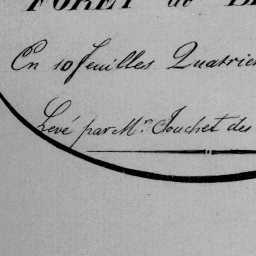 FORET de B
En 10 feuilles Quatrie
Levé par Mr. Jouchet des